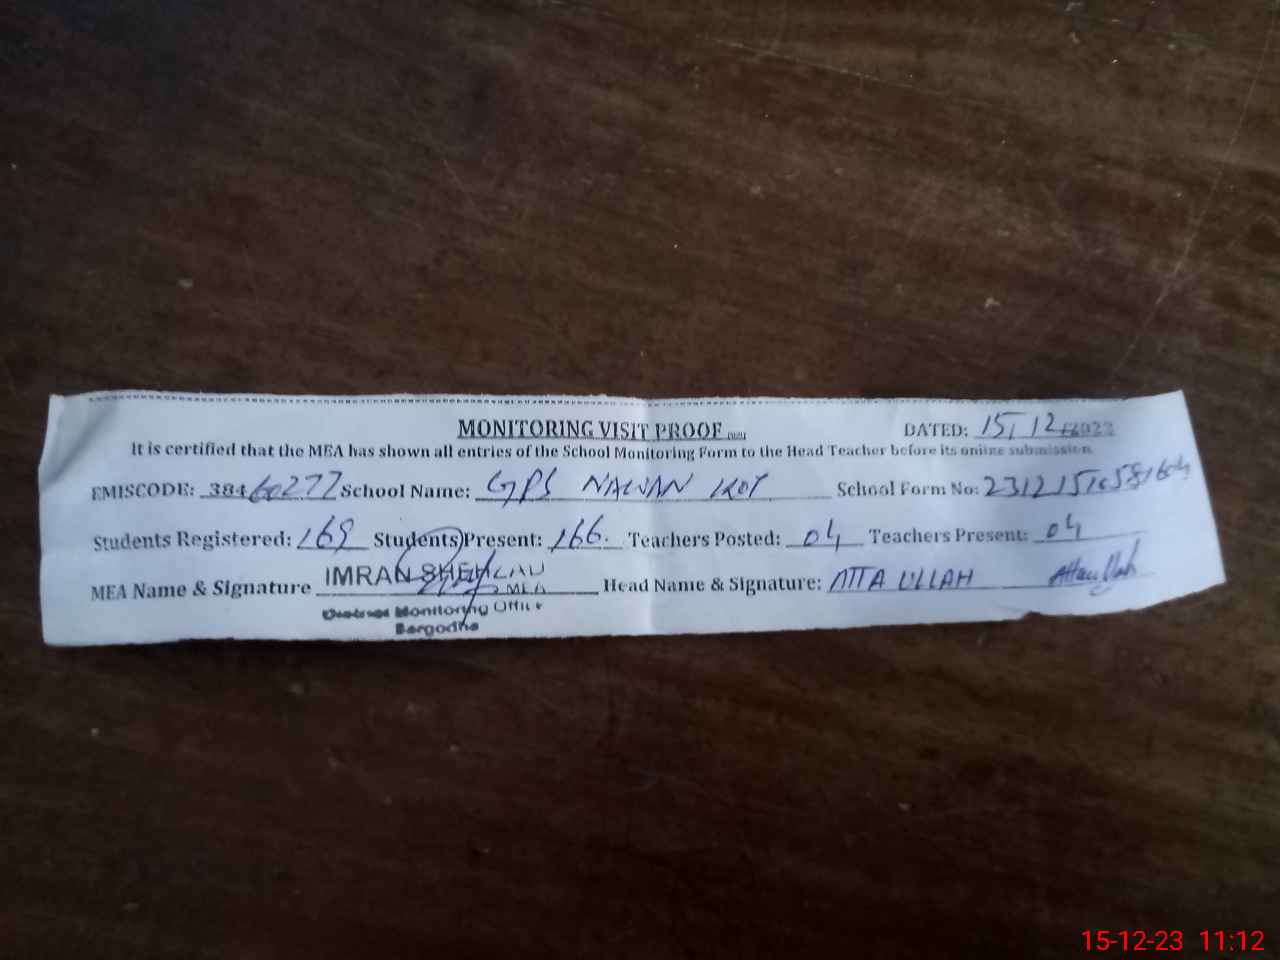 MONITORING VISIT PROOF DATED: 15/12/2022
It is certified that the MEA has shown all entries of the School Monitoring Form to the Head Teacher before its online submission.
EMISCODE: 38460277 School Name: GPS NAWAN KOT School Form No:
Students Registered: 169 Students Present: 166. Teachers Posted: 04 Teachers Present: 04
MEA Name & Signature IMRAN Head Name & Signature: ATTA ULLAH Attaullah
MEA
District Monitoring Office
Sargodha
15-12-23 11:12